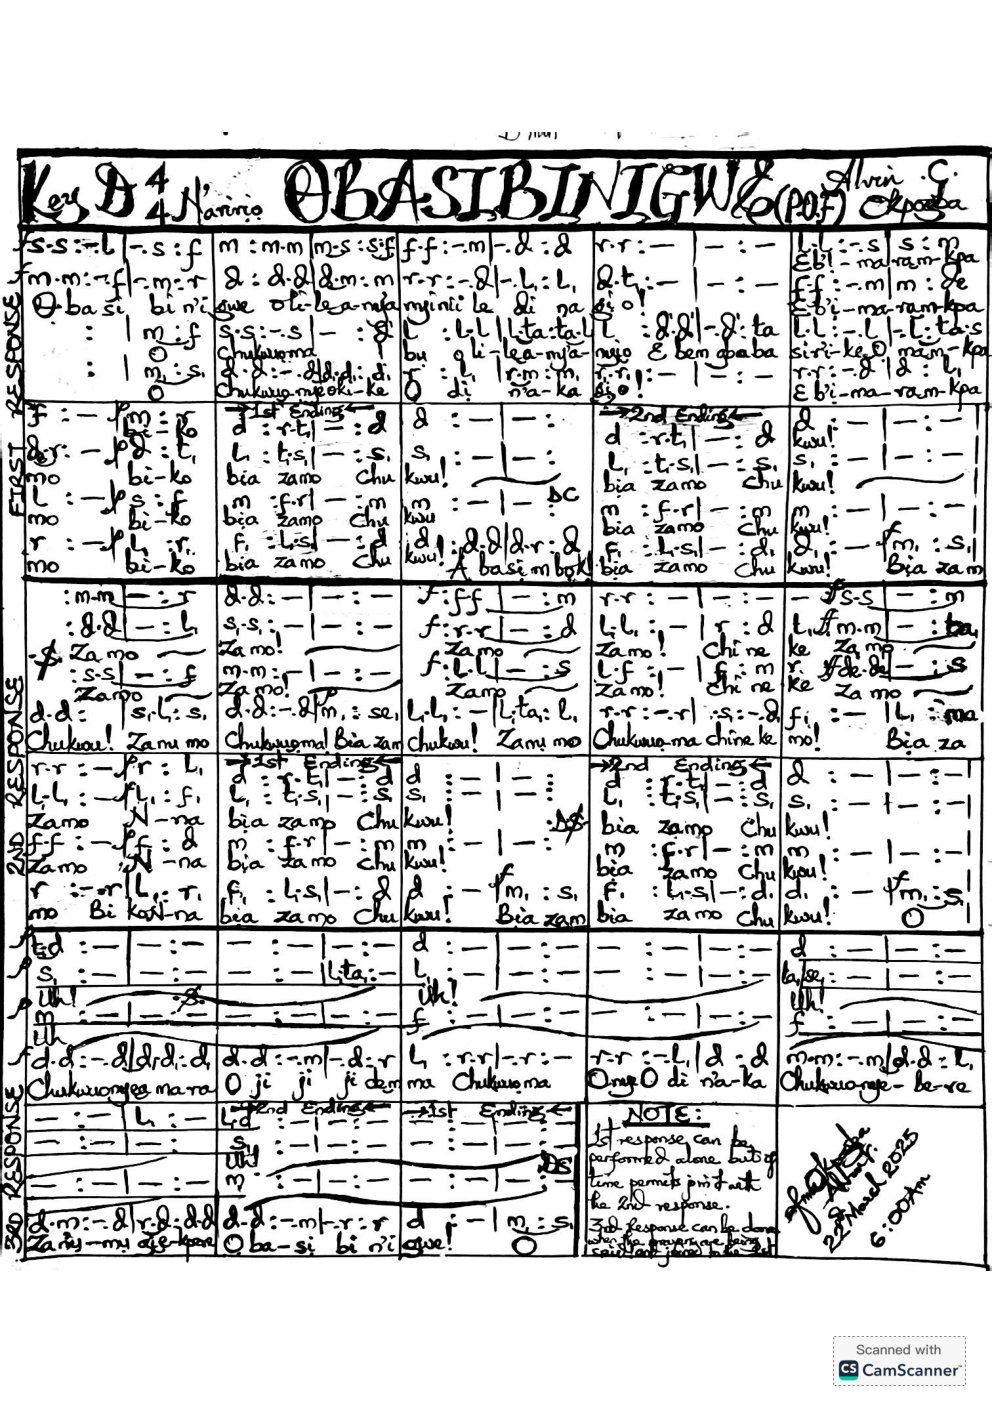 Key D 4/4 N'ariri o OBASIBINIGWE (P.O.F) Alvin G. Okpogba
FIRST RESPONSE
s·s :-·l |-·s : f m : m·m |m·s : s·f f·f :-·m |-·d : d r·r : — | — : — l·l :-·s | s : m
Ebi-ma-ram-kpa
m·m :-·f |-·m : r d : d·d |d·m : m r·r :-·d |-·l, : l, d·t, : — | — : — f·f :-·m | m : de
O ba si bi n'i gwe oli-le-a-nya nyinii le di na si o! Ebi-ma-ram-kpa
: | m : f s·s :-·s | — : d' l : l·l |l·ta : ta·l l : d'·d' |-·d' : ta l·l :-·l |-·l : ta·s
O Chukwuoma I bu o li-lea-nya- nujo E bem gbaba siri-ke, O mam-kpa
: | m, : s, d·d :-·d |d·d, : d, r : l, |r·m : m, r·r :-·d | d : l,
O Chukwuo-nyeoki-ke O di n'a-ka si o! Ebi-ma-ram-kpa
f : — | m : r 1st Ending d : r·t, | — : d d : — | — : — 2nd Ending d : r·t, | — : d d : — | — : —
bi-ko kwu!
d·r : — | d : t, l, : t,·s, | — : s, s, : — | — : — l, : t,·s, | — : s, s, : — | — : —
mo bi-ko bia zamo Chu kwu! bia zamo Chu kwu!
l : — | s : f m : f·r | — : m m : — | — : — DC m : f·r | — : m m : — | — : —
mo bi-ko bia zamo Chu kwu bia zamo Chu kwu!
r : — | l, : r, f, : l,·s, | — : d d : d·d |d·r : d f, : l,·s, | — : d, d, : — | m, : s,
mo bi-ko bia zamo Chu kwu! A basi m bok! bia zamo Chu kwu! Bia zam
2ND RESPONSE
: m·m | — : r d·d : — | — : — : f·f | — : m r·r : — | — : — s·s | — : m
: d·d | — : l, s,·s, : — | — : — : r·r | — : d l,·l, : — | r : d t, m·m | — : ta,
Zamo Zamo! Zamo Zamo! Chi ne ke Zamo
: s·s | — : f m·m : — | — : — : l·l | — : s l·f : — | f : m r de·de | — : s
Zamo Zamo! Zamo Zamo! Chi ne ke Zamo
d·d : | s,·l, : s, d·d :-·d |m, : se, l,·l, :-·l, |l,·ta, : l, r·r :-·r | s : -·d f, : — | l, : ma
Chukwu! Zanu mo Chukwuoma! Bia zam Chukwu! Zanu mo Chukwuo-ma chine ke mo! Bia za
r·r : — | r : l, 1st Ending d : r·t, | — : d d : — | — : 2nd Ending d : r·t, | — : d d : — | — : —
l,·l, : — | l, : f, l, : t,·s, | — : s, s, : — | — : l, : t,·s, | — : s, s, : — | — : —
Zamo N-na bia zamo Chu kwu! bia zamo Chu kwu!
f·f : — | f : d m : f·r | — : m m : — | — : DS m : f·r | — : m m : — | — : —
Zamo N-na bia zamo Chu kwu! bia zamo Chu kwu!
r : -·r | l, : r, f, : l,·s, | — : d d : — | m, : s, f, : l,·s, | — : d, d, : — | m, : s,
mo Bi koN-na bia zamo Chu kwu! Bia zam bia zamo Chu kwu! O
3RD RESPONSE
t,d : — | — : — — : — | — : — d : — | — : — — : — | — : — d : — | — : —
s, : — | — : — — : — | l,·ta, : — l, : — | — : — — : — | — : — la,·se, : — | — : —
Uh! Uh! Uh!
m : — | — : — — : — | — : — f : — | — : — — : — | — : — f : — | — : —
Uh
d·d :-·d |d·d, : d, d·d :-·m |-·d : r l, : r·r |-·r : — r·r :-·l, | d : d m·m :-·m |d·d : l,
Chukwuonyea ma ra O ji ji ji dem ma Chukwuoma Onye O di n'a-ka Chukwuonye-be-re
— : — | l, : l,d 2nd Ending 1st Ending
— : — | — : — s, : — | — : — — : — | — : —
Uh! DS
— : — | — : — m : — | — : — — : — | — : —
d·m :-·d |r·d : d·d d·d :-·m |-·r : r d : — | m, : s,
O ba-si bi n'i gwe! O
NOTE:
1st response can be
performed alone but if
time permits
the 2nd response.
3rd Response can be done
when the prayers are being
said and joined to the 1st
22nd March 2025
6:00Am
Scanned with
CS CamScanner